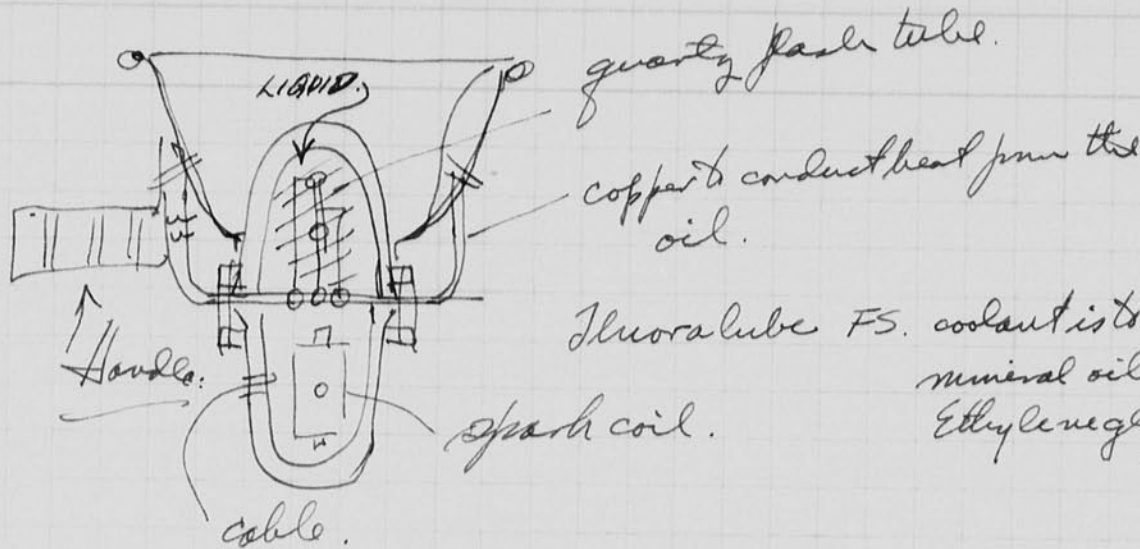 LIQUID.
quartz flash tube.
copper to conduct heat from the
oil.
Handle:
Fluoralube FS. coolant is to
mineral oil
Ethylenegl
spark coil.
cable.